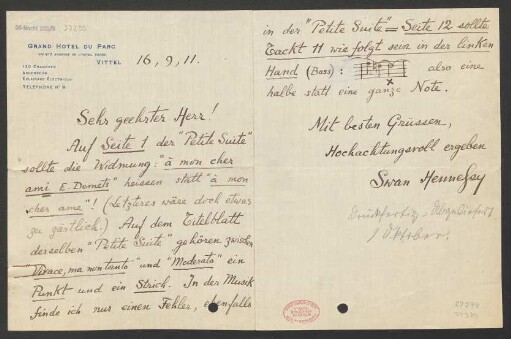 GRAND HOTEL DU PARC
VITTEL
120 CHAMBRES
ASCENSEUR
ECLAIRAGE ELECTRIQUE
TELEPHONE Nº 9.
16, 9, 11.
Sehr geehrter Herr!
Auf Seite 1 der "Petite Suite"
sollte die Widmung: "à mon cher
ami E. Demets" heissen statt "à mon
cher ame"! (Letzteres wäre doch etwas
zu zärtlich.) Auf dem Titelblatt
derselben "Petite Suite" gehören zwischen
"Vivace, ma non tanto" und "Moderato" ein
Punkt und ein Strich. In der Musik
finde ich nur einen Fehler, ebenfalls
in der "Petite Suite" = Seite 12 sollte
Tackt 11 wie folgt sein in der linken
Hand (Bass): also eine
halbe statt eine ganze Note.
Mit besten Grüssen,
Hochachtungsvoll ergeben
Swan Hennessy
Druckfertig
1 Oktober